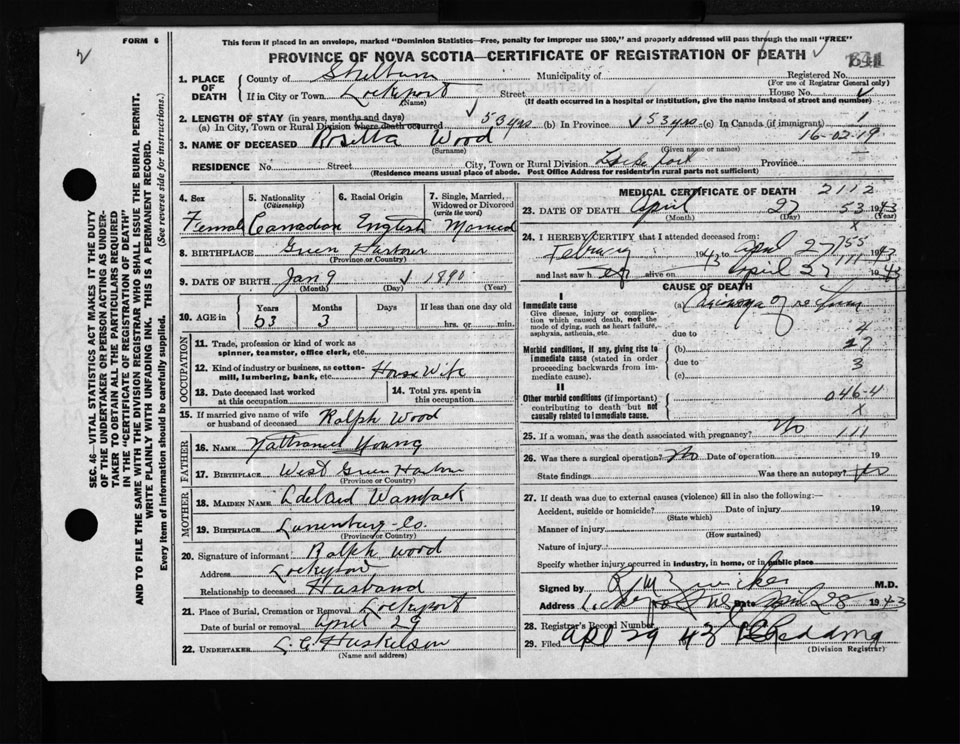 FORM 6
This form if placed in an envelope, marked "Dominion Statistics—Free, penalty for improper use $300," and properly addressed will pass through the mail "FREE"
PROVINCE OF NOVA SCOTIA—CERTIFICATE OF REGISTRATION OF DEATH
1. PLACE OF DEATH
County of Shelburn Municipality of Registered No.
(For use of Registrar General only)
If in City or Town Lockeport Street House No.
(Name) (If death occurred in a hospital or institution, give the name instead of street and number)
2. LENGTH OF STAY (in years, months and days)
(a) In City, Town or Rural Division where death occurred 53 yrs (b) In Province 53 yrs (c) In Canada (if immigrant) 1
16-02-19
3. NAME OF DECEASED Rosetta Wood
(Surname) (Given name or names)
RESIDENCE No. Street City, Town or Rural Division Province
(Residence means usual place of abode. Post Office Address for residents in rural parts not sufficient)
4. Sex
5. Nationality (Citizenship)
6. Racial Origin
7. Single, Married, Widowed or Divorced (write the word)
Female Canadian English Married
8. BIRTHPLACE Green Harbour
(Province or Country)
9. DATE OF BIRTH Jan 9 1890
(Month) (Day) (Year)
10. AGE in
Years Months Days If less than one day old
53 3 hrs. or min.
OCCUPATION
11. Trade, profession or kind of work as spinner, teamster, office clerk, etc.
12. Kind of industry or business, as cotton-mill, lumbering, bank, etc. House Wife
13. Date deceased last worked at this occupation
14. Total yrs. spent in this occupation
15. If married give name of wife or husband of deceased Ralph Wood
FATHER
16. NAME Nathaniel Young
17. BIRTHPLACE West Green Harbor
(Province or Country)
MOTHER
18. MAIDEN NAME
19. BIRTHPLACE Lunenburg Co.
(Province or Country)
20. Signature of informant Ralph Wood
Address Lockeport
Relationship to deceased Husband
21. Place of Burial, Cremation or Removal Lockeport
Date of burial or removal April 29
22. UNDERTAKER
(Name and address)
MEDICAL CERTIFICATE OF DEATH 2112
23. DATE OF DEATH April 27 1943
(Month) (Day) (Year)
53
x
24. I HEREBY CERTIFY that I attended deceased from:
1943 to April 27 1943
and last saw h er alive on April 27 1943
CAUSE OF DEATH
I
Immediate cause
Give disease, injury or complication which caused death, not the mode of dying, such as heart failure, asphyxia, asthenia, etc.
(a)
due to 4
Morbid conditions, if any, giving rise to immediate cause (stated in order proceeding backwards from immediate cause).
(b)
due to 3
(c)
II
Other morbid conditions (if important) contributing to death but not causally related to immediate cause.
046-4
x
25. If a woman, was the death associated with pregnancy? No 111
26. Was there a surgical operation? No Date of operation 19
State findings Was there an autopsy?
27. If death was due to external causes (violence) fill in also the following:—
Accident, suicide or homicide? Date of injury 19
(State which)
Manner of injury
(How sustained)
Nature of injury
Specify whether injury occurred in industry, in home, or in public place
Signed by M.D.
Address Date April 28 1943
28. Registrar's Record Number
29. Filed Apl 29 43
(Division Registrar)
SEC. 46—VITAL STATISTICS ACT MAKES IT THE DUTY OF THE UNDERTAKER OR PERSON ACTING AS UNDERTAKER TO OBTAIN ALL THE PARTICULARS REQUIRED IN THE "CERTIFICATE OF REGISTRATION OF DEATH" AND TO FILE THE SAME WITH THE DIVISION REGISTRAR WHO SHALL ISSUE THE BURIAL PERMIT.
WRITE PLAINLY WITH UNFADING INK. THIS IS A PERMANENT RECORD.
Every item of information should be carefully supplied. (See reverse side for instructions.)